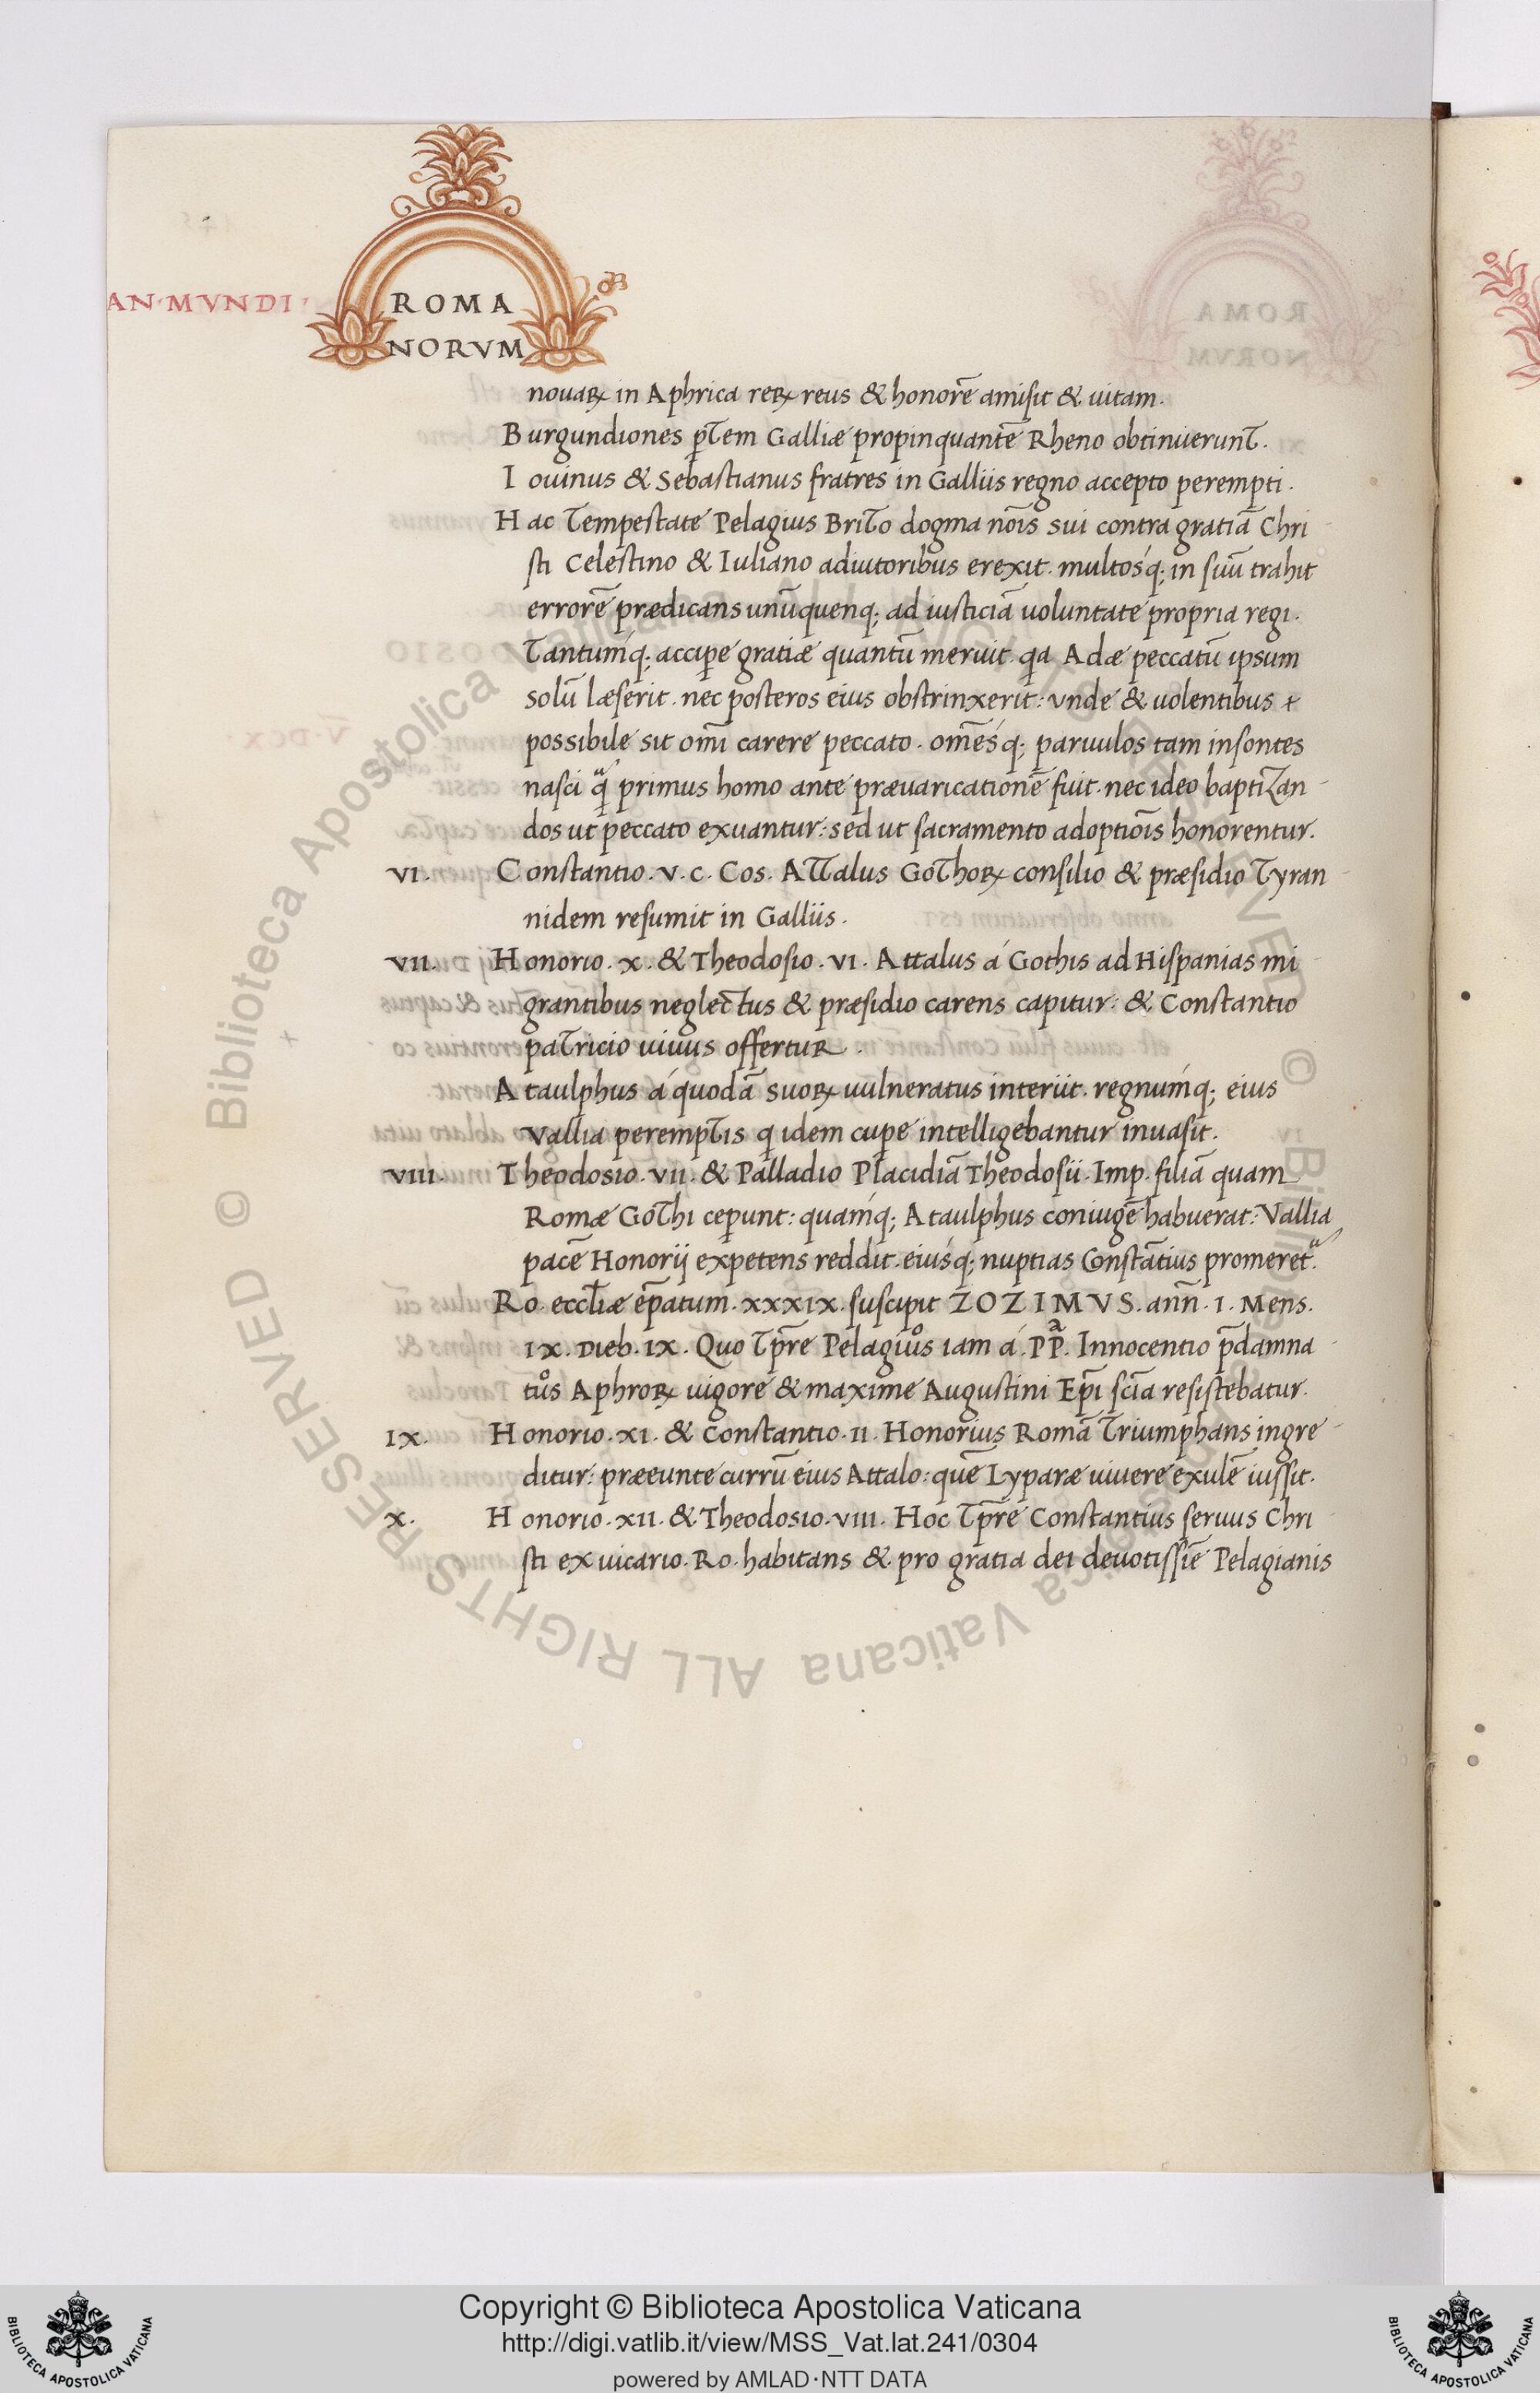 AN·MVNDI·
ROMA
NORVM
nouaꝝ in Aphrica reꝝ reus & honorē amisit & uitam.
Burgundiones ꝑtem Galliæ propinquantē Rheno obtinuerunt.
Iouinus & Sebastianus fratres in Galliis regno accepto perempti.
Hac tempestate Pelagius Brito dogma nōis sui contra gratiā Chri
sti Celestino & Iuliano adiutoribus erexit. multosq́; in suū trahit
errorē prædicans unūquenq; ad iusticiā uoluntate propria regi.
Tantumq́; accipe gratiæ quantū meruit. qa Adæ peccatū ipsum
solū læserit. nec posteros eius obstrinxerit: vnde & uolentibus +
possibile sit omī carere peccato. omēsq́; paruulos tam insontes
nasci qᵃ primus homo ante præuaricationē fuit. nec ideo baptizan
dos ut peccato exuantur: sed ut sacramento adoptiōis honorentur.
VI. Constantio. V. C. Cos. Attalus Gothoꝝ consilio & præsidio tyran
nidem resumit in Galliis.
VII. Honorio. X. & Theodosio. VI. Attalus á Gothis ad Hispanias mi
grantibus neglectus & præsidio carens capitur: & Constantio
patricio uiuus offertur.
Ataulphus á quodā suoꝝ uulneratus interiit. regnumq́; eius
Vallia peremptis q idem cupe intelligebantur inuasit.
VIII. Theodosio. VII. & Palladio Placidiā Theodosii. Imp. filiā quam
Romæ Gothi ceperunt: quamq́; Ataulphus coniugē habuerat: Vallia
pacē Honorij expetens reddit. eiusq́; nuptias Constātius promeretᵃ.
Ro. eccl̄iæ ep̄atum. XXXIX. suscipit ZOZIMVS. ann̄. I. Mens.
IX. Dieb. IX. Quo tp̄re Pelagius iam á. PP. Innocentio p̄damna
tus Aphroꝝ uigore & maxime Augustini Ep̄i scīa resistebatur.
IX. Honorio. XI. & Constantio. II. Honorius Romā triumphans ingre
ditur: præeunte currū eius Attalo: quē Lyparæ uiuere exulē iussit.
X. Honorio. XII. & Theodosio. VIII. Hoc tp̄re Constantius seruus Chri
sti ex uicario. Ro. habitans & pro gratia dei deuotissīe Pelagianis
Copyright © Biblioteca Apostolica Vaticana
http://digi.vatlib.it/view/MSS_Vat.lat.241/0304
powered by AMLAD·NTT DATA
BIBLIOTECA APOSTOLICA VATICANA
BIBLIOTECA APOSTOLICA VATICANA